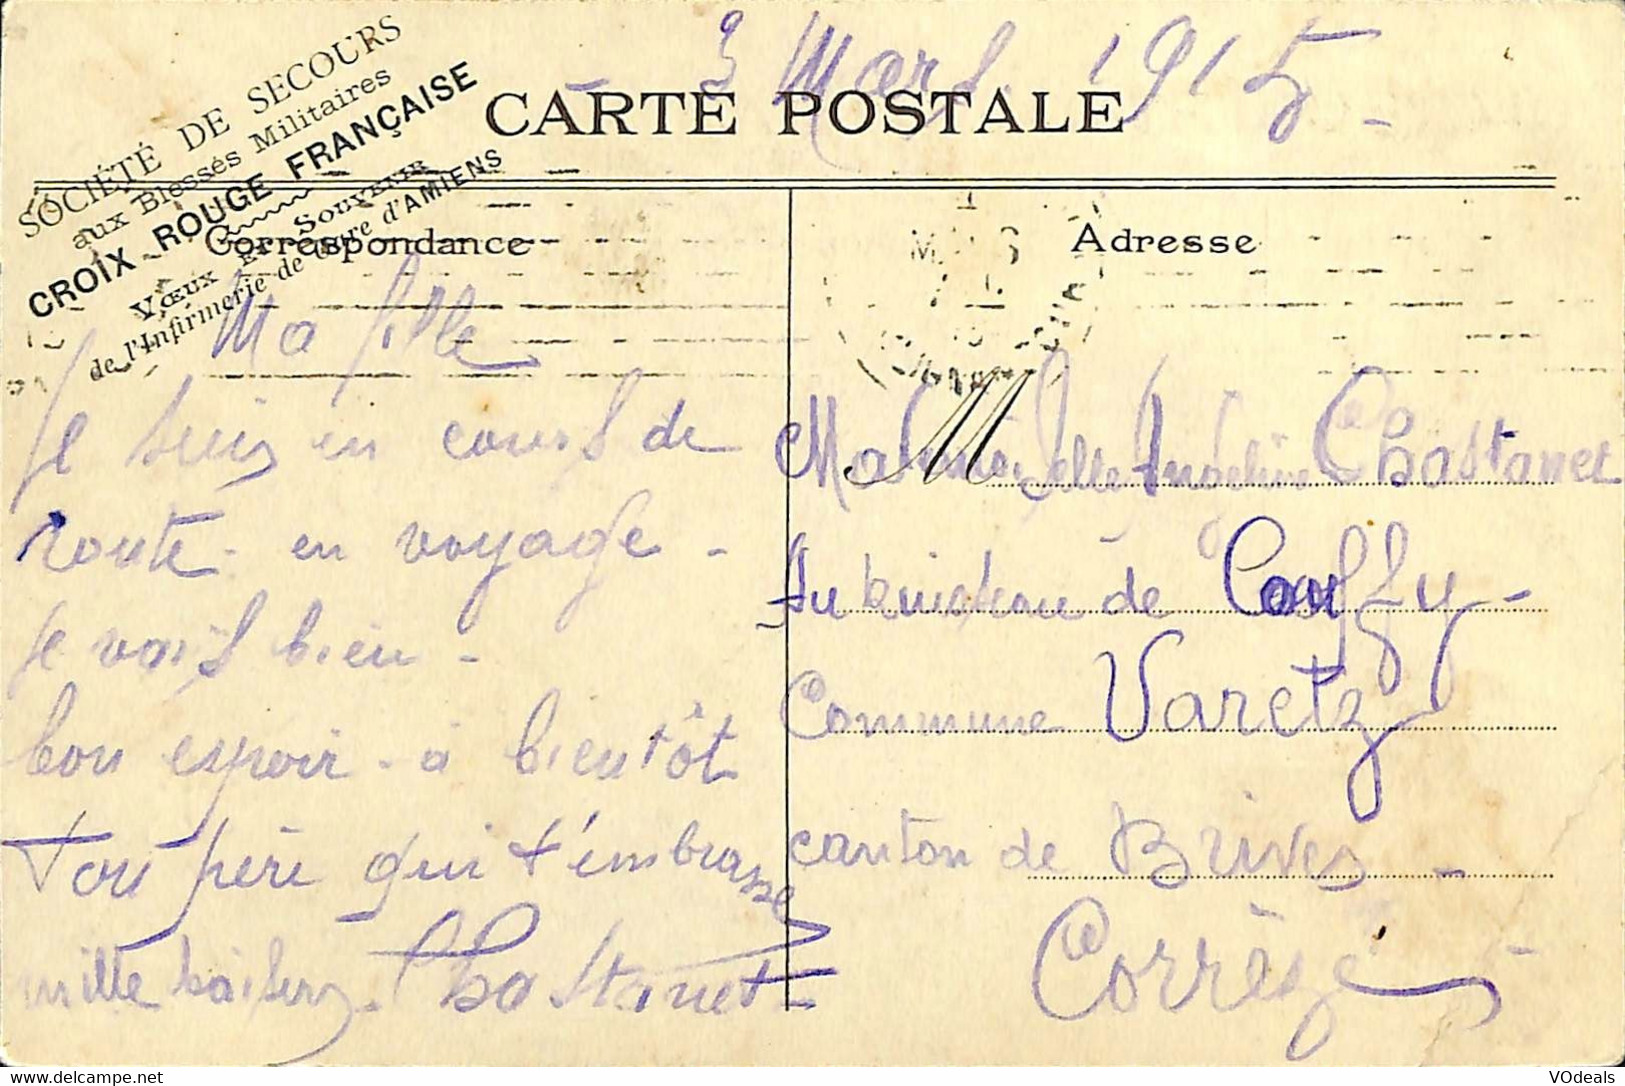 3 Mars 1915
CARTE POSTALE
SOCIÉTÉ DE SECOURS
aux Blessés Militaires
CROIX ROUGE FRANÇAISE
Vœux et Souvenir
de l'Infirmerie de Gare d'AMIENS
Correspondance
Ma fille
Je suis en cours de
route - en voyage -
Je vais bien -
bon espoir - à bientôt
Ton père qui t'embrasse
mille baisers. Chastanet
Adresse
M
Mademoiselle Angeline Chastanet
Au de Couffy -
Commune Varetz
canton de Brives -
Corrèze
VOdeals